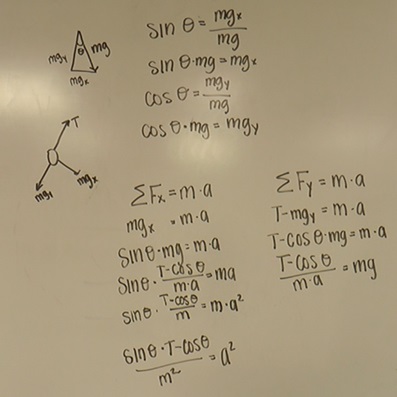 sin θ = mgx/mg
mgy θ mg
mgx
sin θ·mg = mgx
cos θ = mgy/mg
cos θ·mg = mgy
T
mgy mgx
ΣFx = m·a
mgx = m·a
sin θ·mg = m·a
sin θ · T-cos θ/m·a = ma
sin θ · T-cos θ/m = m·a²
sin θ · T-cos θ/m² = a²
ΣFy = m·a
T-mgy = m·a
T-cos θ·mg = m·a
T-cos θ/m·a = mg